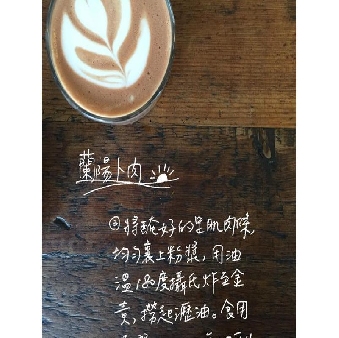 蘭陽卜肉
②將醃好的里肌肉條,
均勻裹上粉漿,用油
溫180度攝氏炸至金
黃,撈起瀝油。食用